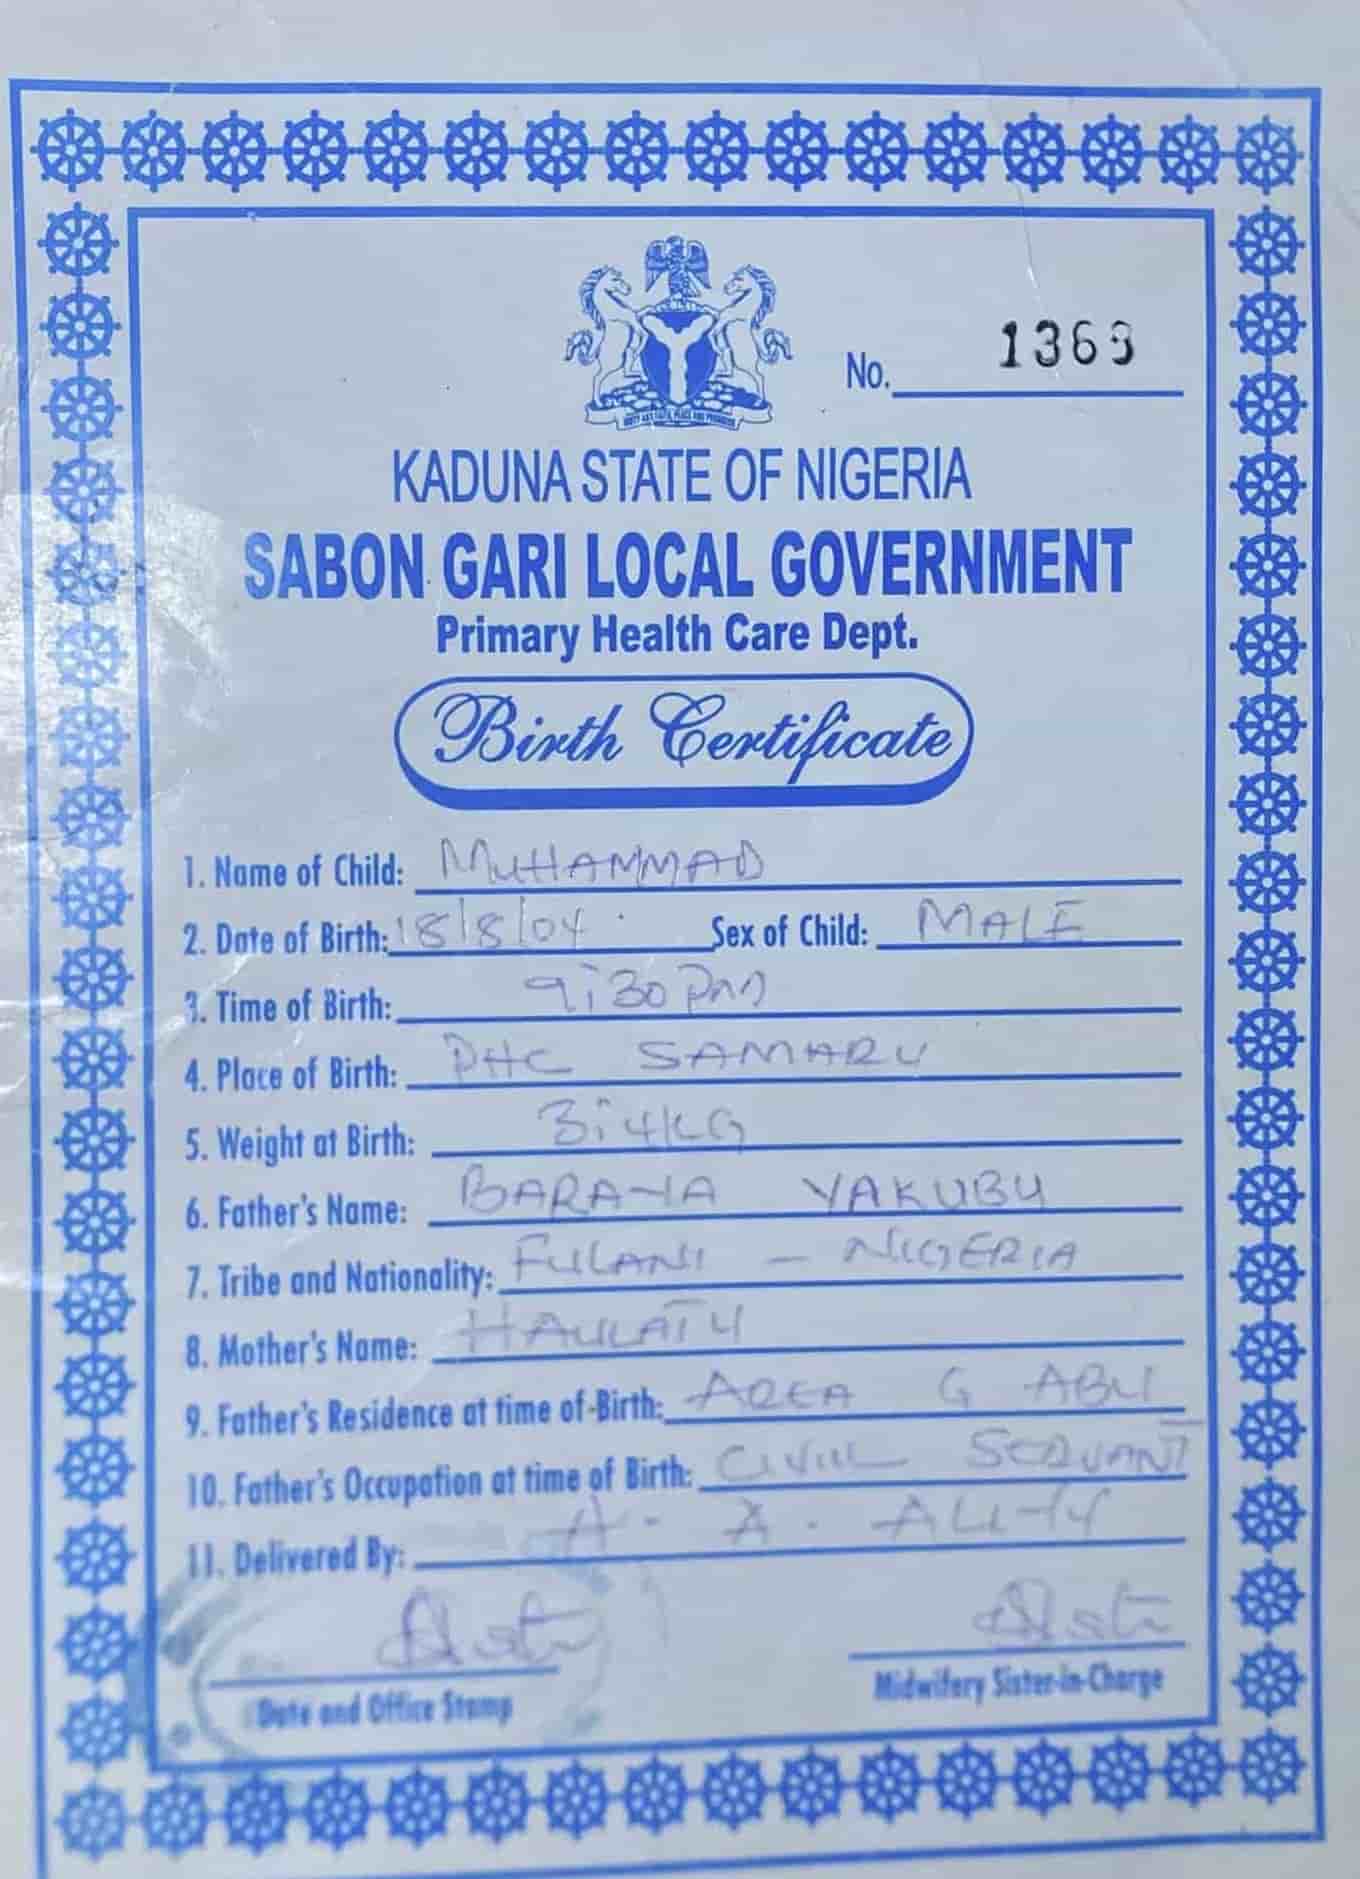 No. 1369
KADUNA STATE OF NIGERIA
SABON GARI LOCAL GOVERNMENT
Primary Health Care Dept.
Birth Certificate
1. Name of Child: MUHAMMAD
2. Date of Birth: 18/8/04 Sex of Child: MALE
3. Time of Birth: 9:30 pm
4. Place of Birth: PHC SAMARU
5. Weight at Birth: 3.4KG
6. Father's Name: YAKUBU
7. Tribe and Nationality: FULANI - NIGERIA
8. Mother's Name: HAULATU
9. Father's Residence at time of Birth: AREA G ABU
10. Father's Occupation at time of Birth: CIVIL SERVANT
11. Delivered By: A. A. ALIYU
Date and Office Stamp
Midwifery Sister-in-Charge